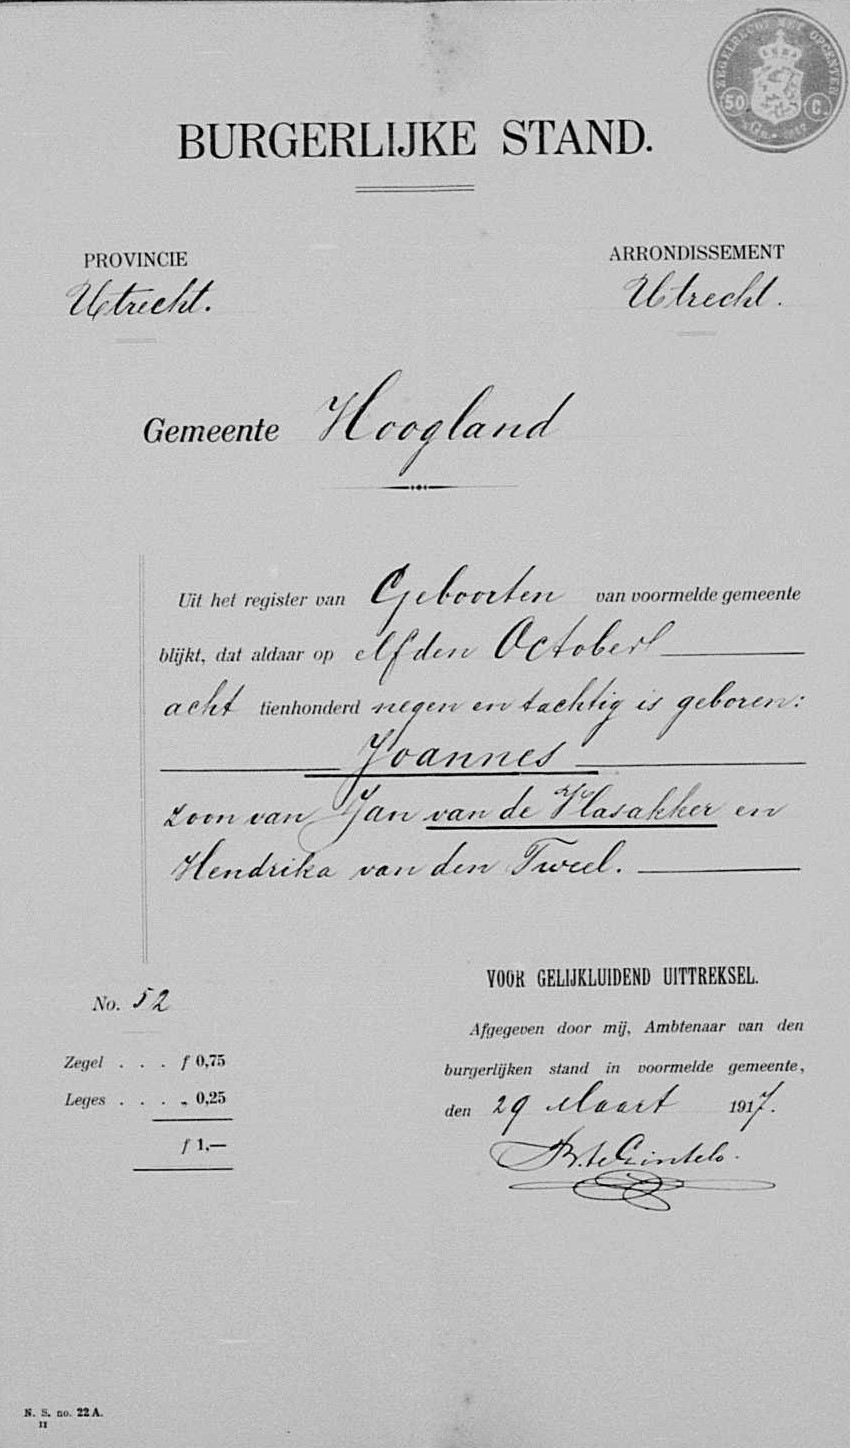 ZEGELRECHT MET OPCENTEN
50 C.
BURGERLIJKE STAND.
PROVINCIE
Utrecht.
ARRONDISSEMENT
Utrecht.
Gemeente Hoogland
Uit het register van Geboorten van voormelde gemeente
blijkt, dat aldaar op elfden October
acht tienhonderd negen en tachtig is geboren:
Joannes
zoon van Jan van de Vlasakker en
Hendrika van den Tweel.
VOOR GELIJKLUIDEND UITTREKSEL.
No. 52
Afgegeven door mij, Ambtenaar van den
burgerlijken stand in voormelde gemeente,
den 29 Maart 1917.
Zegel . . . f 0,75
Leges . . . „ 0,25
f 1,—
N. S. no. 22 A.
II